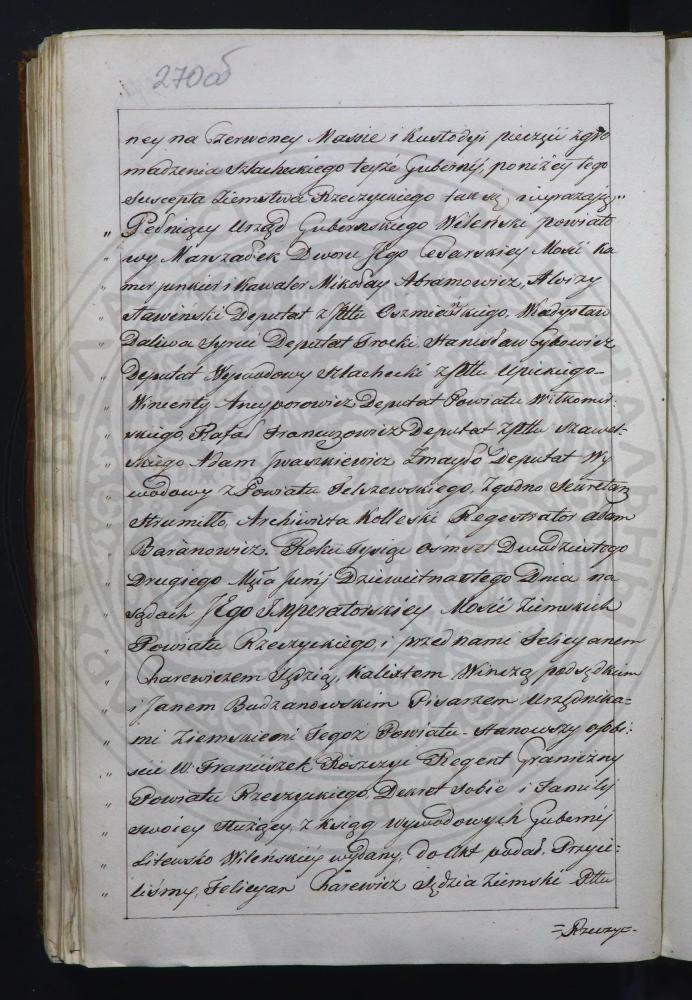 270 об
ney na Czerwoney Massie i Kustodyi pieczęci Zgro
madzenia Szlacheckiego teyże Gubernij, poniżey tego
suscepta Ziemstwa Rzeczyckiego tak się, wyrażają „
„ Pełniący Urząd Gubernskiego Wileński powiato
„ wy Marszałek Dworu JEgo Cesarskiey Mości Ka
„ mer junkier i Kawaler Mikołay Abramowicz, Aloizy
„ Sławiński Deputat z Pttu Oszmiańskiego, Władysław
„ Daliwa Syruć Deputat Trocki, Stanisław Sylowicz
„ Deputat Wywodowy Szlachecki z Pttu Upickiego
„ Wincenty Ancyporowicz Deputat Powiatu Wiłkomir-
„ skiego, Rafał Francuzowicz Deputat z Pttu Szawel-
„ skiego Adam Jwaszkiewicz Zmayło Deputat Wy
„ wodowy z Powiatu Telszewskiego, Zgodno Sekretarz
„ Strumiłło, Archiwista Kolleski Regestrator Adam
„ Baranowicz. Roku Tysiąc Ośmset Dwudziestego
„ Drugiego Msca Junij Dziewietnastego Dnia na
„ Sądach JEgo Imperatorskiey Mości Ziemskich
„ Powiatu Rzeczyckiego, i przed nami Felicyanem
„ Charewiczem Sędzią, Kalixtem Winczą podsędkiem
„ i Janem Budzanowskim Pisarzem Urzędnika-
„ mi Ziemskiemi Tegoż Powiatu - stanowszy osobi:
„ ście W: Franciszek Roszczyc Regent Graniczny
„ Powiatu Rzeczyckiego, Dekret Sobie i Familij
„ swoiey służący, z Ksiąg wywodowych Gubernij
„ Litewsko Wileńskiey wydany, do Akt podał, Przyie-
„ liśmy, Felicyan Charewicz Sędzia Ziemski Pttu
= Rzeczyc-